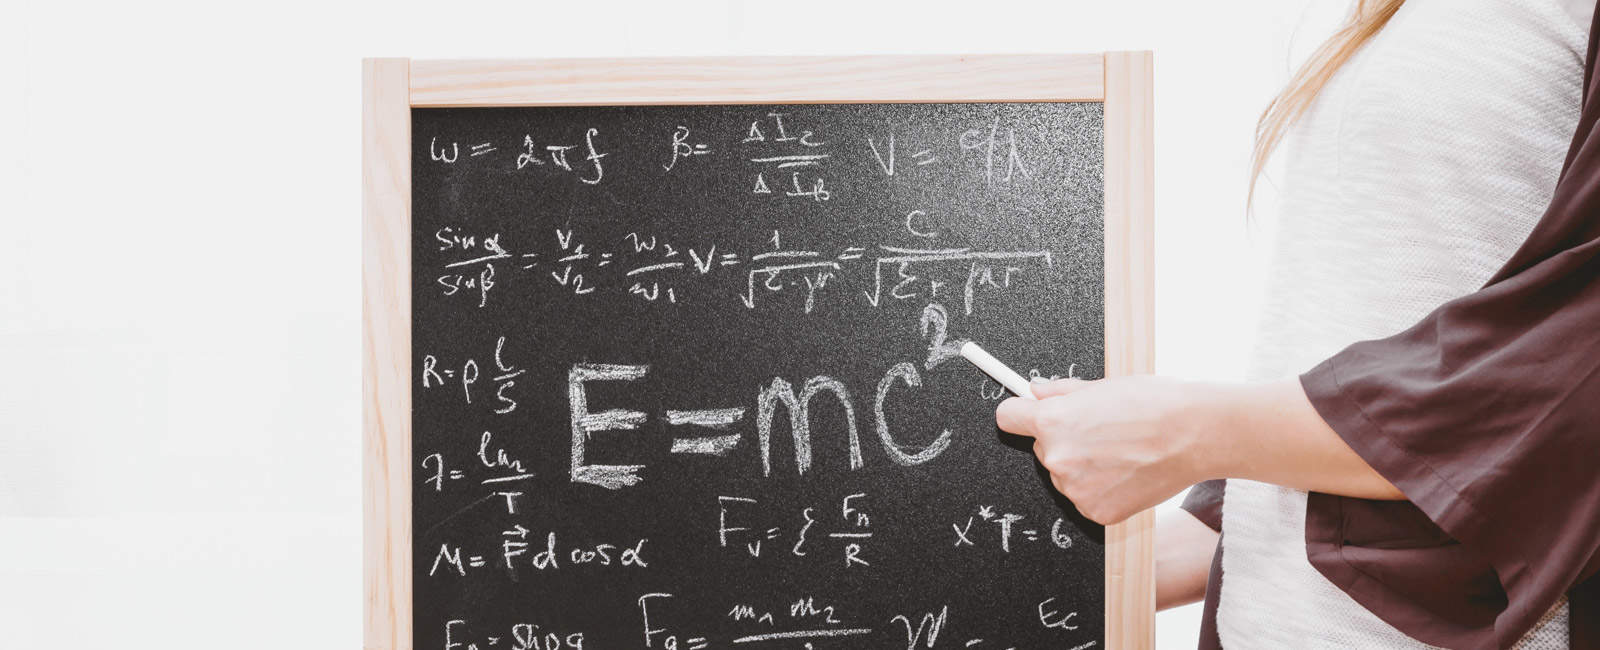 ω = 2πf   β = ΔI_C / ΔI_B   V = c/λ
sin α / sin β = v₁ / v₂ = n₂ / n₁   V = 1 / √(ε·μ) = C / √(ε_r μ_r)
R = ρ l/S
E = mc²
λ = ln₂ / T
F_v = { F_n / R   x*T = 6
M = F⃗ d cos α
F_g = m₁ m₂
E_C